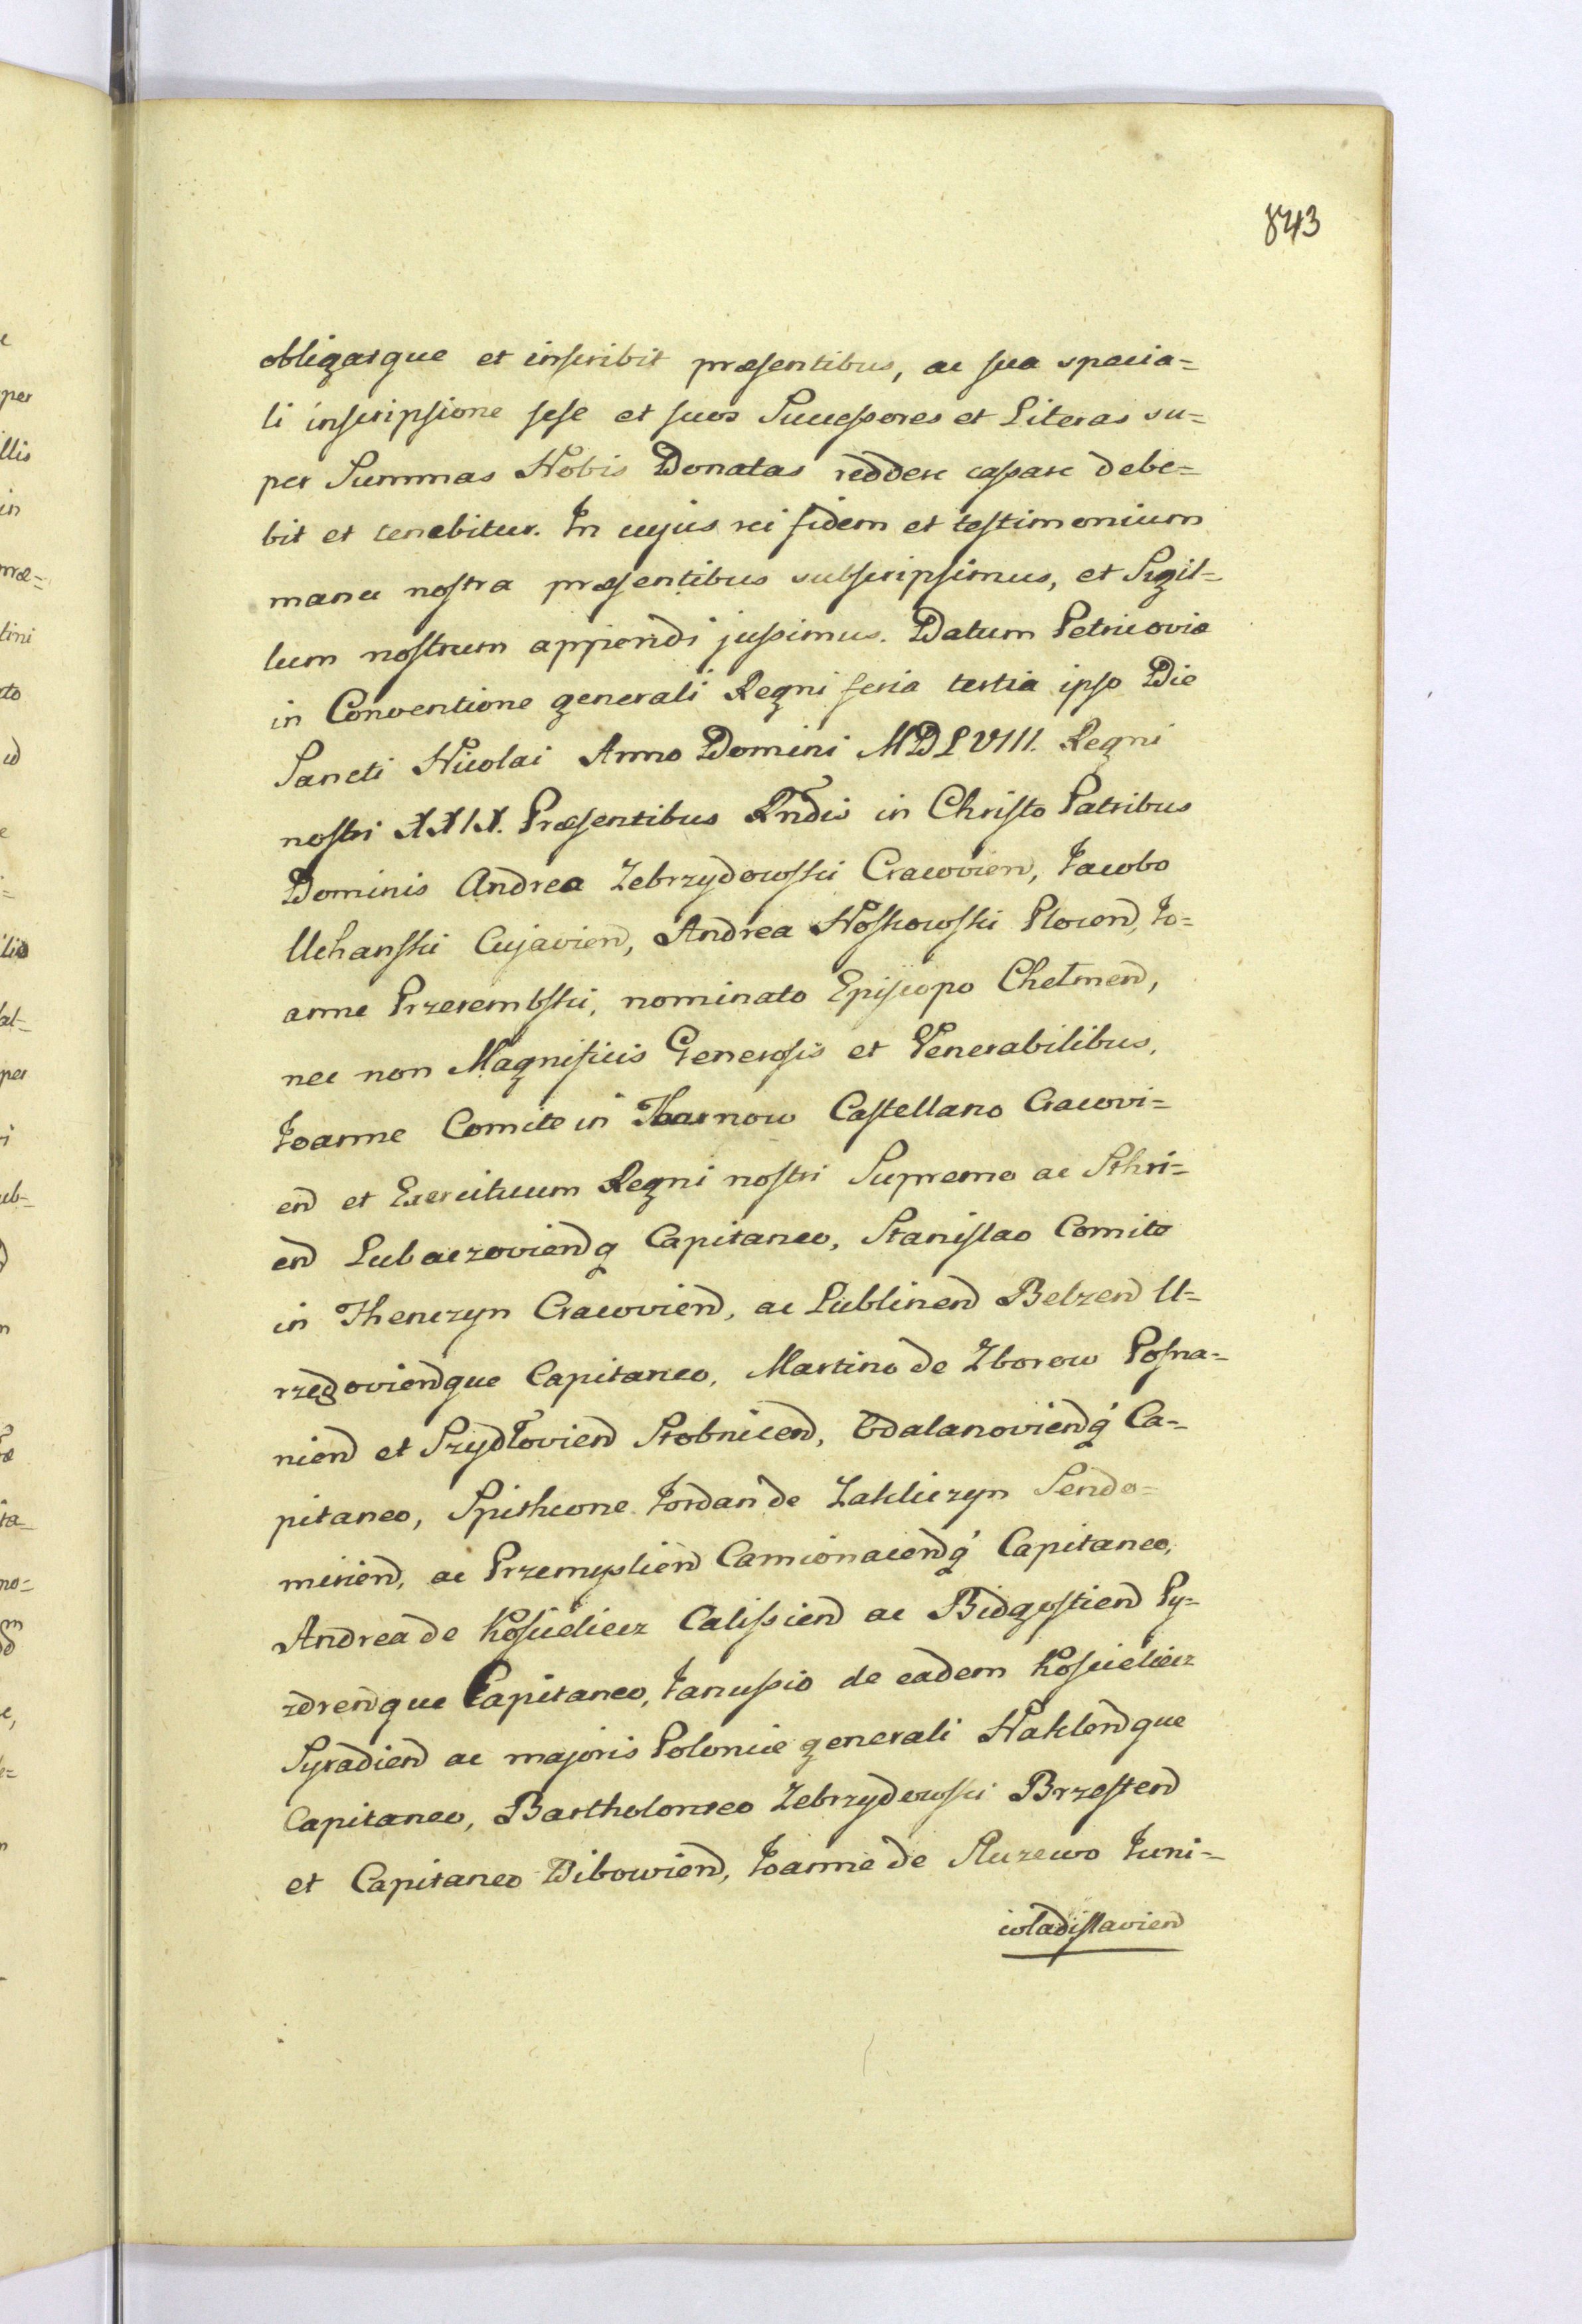 843
obligatque et inscribit præsentibus, ac sua specia=
li inscripsione sese et suos Successores et Literas su=
per Summas Nobis Donatas reddere cassare debe=
bit et tenebitur. In cujus rei fidem et testimonium
manu nostra præsentibus subscripsimus, et Sigil=
lum nostrum appendi jussimus. Datum Petricoviæ
in Conventione generali Regni feria tertia ipso Die
Sancti Nicolai Anno Domini MDLVIII. Regni
nostri XXIX. Præsentibus Rndis in Christo Patribus
Dominis Andrea Zebrzydowski Cracovien, Jacobo
Uchanski Cujavien, Andrea Noskowski Plocen, Jo=
anne Przerembski, nominato Episcopo Chelmen,
nec non Magnificis Generosis et Venerabilibus,
Joanne Comite in Tharnow Castellano Cracovi=
en et Exercituum Regni nostri Supremo ac Sthri=
en Lubaczovienq Capitaneo, Stanislao Comite
in Thenczyn Cracovien, ac Lublinen Belzen U=
rzędoviengque Capitaneo, Martino de Zborow Posna=
nien et Szydłovien Stobnicen, Odalanovienq Ca=
pitaneo, Spithcone Jordan de Zakliczyn Sendo=
mirien, ac Przemyslien Camionacenq Capitaneo,
Andrea de Koscielecz Calissien ac Bidgostien Py=
zdrenque Capitaneo, Janussio de eadem Koscielecz
Syradien ac majoris Poloniæ generali Naklenque
Capitaneo, Bartholomeo Zebrzydowski Brzesten
et Capitaneo Dibowien, Joanne de Sluzewo Juni=
wladislavien